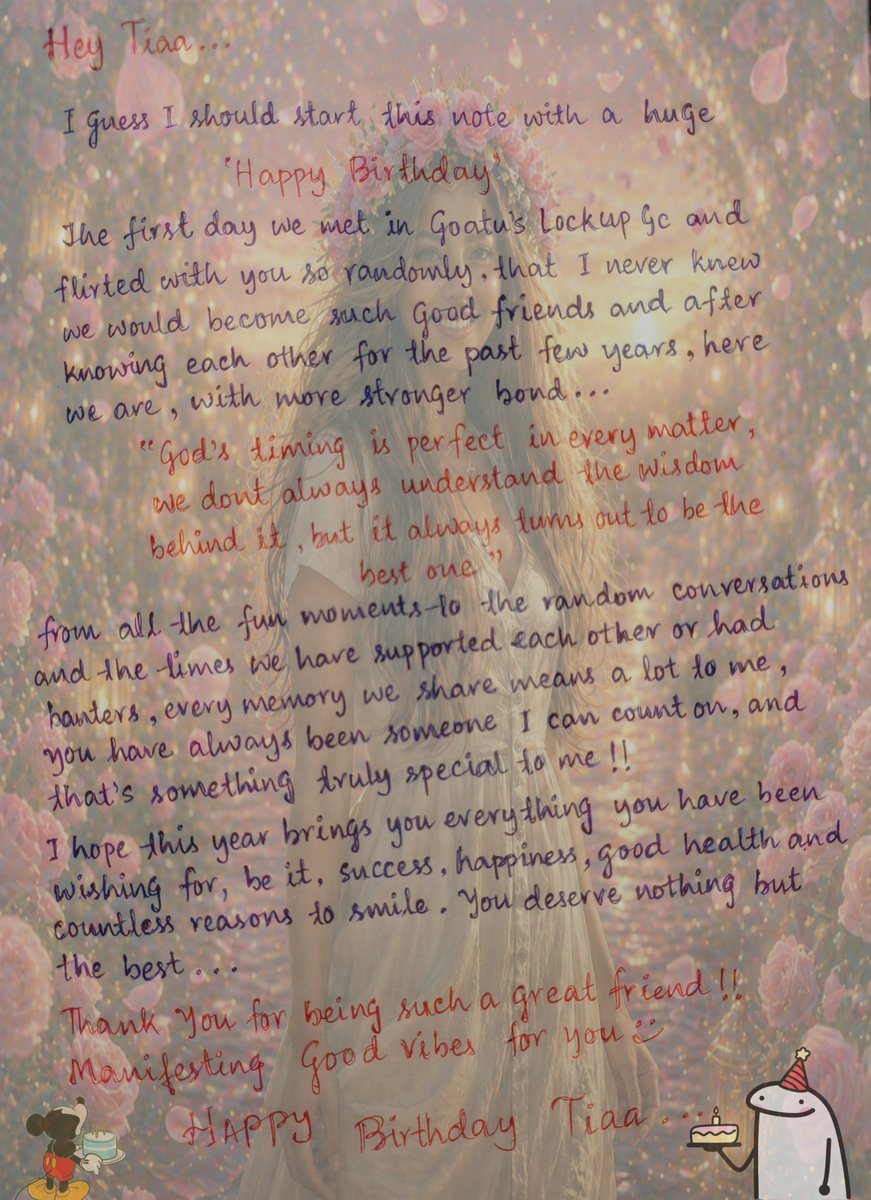 Hey Tiaa...
I guess I should start this note with a huge
'Happy Birthday'
The first day we met in Goatu's Lockup Gc and
flirted with you so randomly, that I never knew
we would become such Good friends and after
knowing each other for the past few years, here
we are, with more stronger bond...
"God's timing is perfect in every matter,
we dont always understand the wisdom
behind it, but it always turns out to be the
best one"
from all the fun moments to the random conversations
and the times we have supported each other or had
banters, every memory we share means a lot to me,
you have always been someone I can count on, and
that's something truly special to me!!
I hope this year brings you everything you have been
wishing for, be it, success, happiness, good health and
countless reasons to smile. You deserve nothing but
the best...
Thank You for being such a great friend!!
Manifesting Good vibes for you
HAPPY Birthday Tiaa...